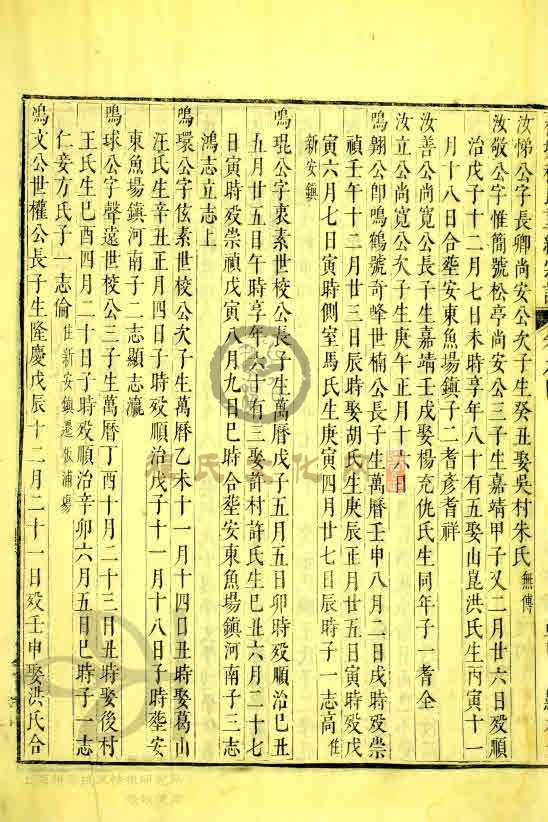 汝悌公字長卿尚安公次子生癸丑娶吳村朱氏無傳
汝敬公字惟簡號松亭尚安公三子生嘉靖甲子又二月廿六日歿順
治戊子十二月七日未時享年八十有五娶山崑洪氏生丙寅十一
月十八日合塟安東魚場鎮子二耆彥耆祥
汝善公尚寬公長子生嘉靖壬戌娶楊充仇氏生同年子一耆全
汝立公尚寬公次子生庚午正月十六日
鳴翱公卽鳴鶴號奇峰世楠公長子生萬曆壬申八月二日戌時歿崇
禎壬午十二月廿三日辰時娶胡氏生庚辰正月廿五日寅時歿戊
寅六月七日寅時側室馬氏生庚寅四月廿七日辰時子一志高住
新安鎮
鳴琨公字衷素世校公長子生萬曆戊子五月五日卯時歿順治己丑
五月廿五日午時享年六十有三娶許村許氏生己丑六月二十七
日寅時歿崇禎戊寅八月九日巳時合塟安東魚場鎮河南子三志
鴻志立志上
鳴環公字伭素世校公次子生萬曆乙未十一月十四日丑時娶葛山
汪氏生辛丑正月四日子時歿順治戊子十一月十八日子時塟安
東魚場鎮河南子二志顯志瀛
鳴球公字聲遠世校公三子生萬曆丁酉十月二十三日丑時娶後村
王氏生己酉四月二十日子時歿順治辛卯六月五日巳時子一志
仁妾方氏子一志倫住新安鎮遷板浦場
鳴文公世權公長子生隆慶戊辰十二月二十一日歿壬申娶洪氏合